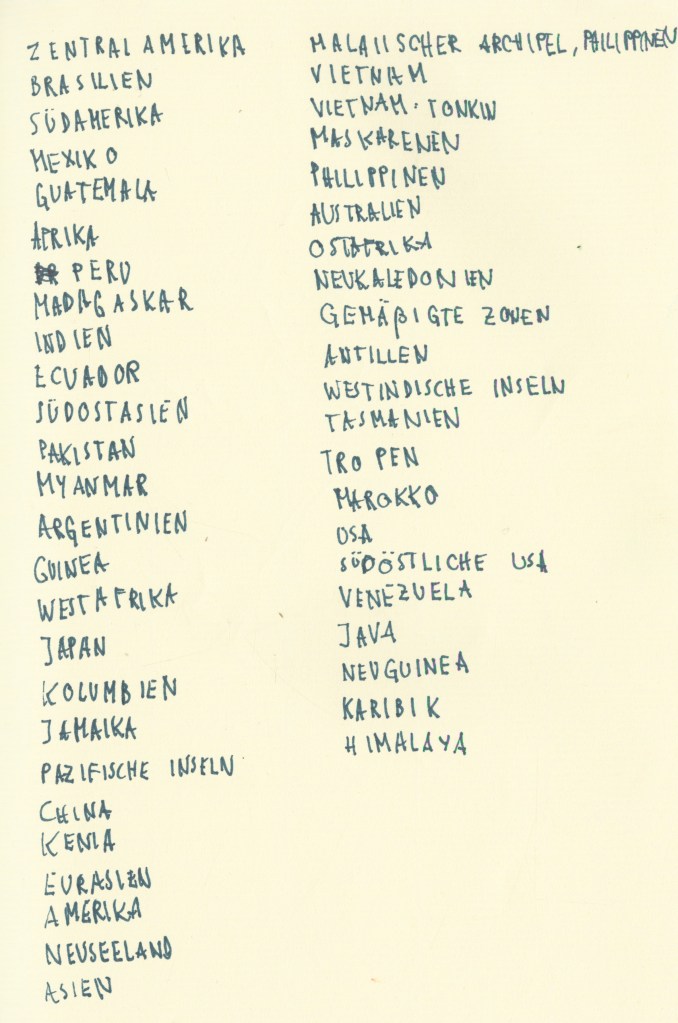 ZENTRALAMERIKA
BRASILIEN
SÜDAMERIKA
MEXIKO
GUATEMALA
AFRIKA
PERU
MADAGASKAR
INDIEN
ECUADOR
SÜDOSTASIEN
PAKISTAN
MYANMAR
ARGENTINIEN
GUINEA
WESTAFRIKA
JAPAN
KOLUMBIEN
JAMAIKA
PAZIFISCHE INSELN
CHINA
KENIA
EURASIEN
AMERIKA
NEUSEELAND
ASIEN
MALAIISCHER ARCHIPEL, PHILIPPINEN
VIETNAM
VIETNAM · TONKIN
MASKARENEN
PHILIPPINEN
AUSTRALIEN
OSTAFRIKA
NEUKALEDONIEN
GEMÄßIGTE ZONEN
ANTILLEN
WESTINDISCHE INSELN
TASMANIEN
TROPEN
MAROKKO
USA
SÜDÖSTLICHE USA
VENEZUELA
JAVA
NEUGUINEA
KARIBIK
HIMALAYA